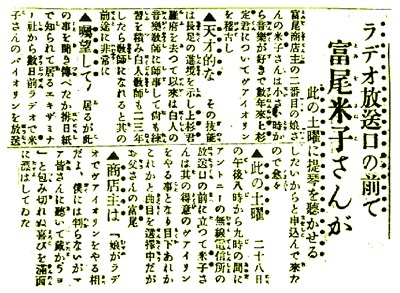 ラデオ放送口の前で
富尾米子さんが
此の土曜に提琴を聴かせる
富尾商店主の二番目の娘さ
んの米子さんは小さい時か
ら音樂が好きで數年來上杉
定君についてヴアイオリン
を稽古し
▲天才的な その後
は長足の進境を示し上杉君
羅府を去つて以來は白人の
音樂教師に師事して尚も練
習を積み白人教師も二三年
したら教師になれると其の
前途に非常に
▲囑望をして 居るが此
の事を聞き傳へたか排日紙
で知られて居るエキザミナ
ー社から數日前ラデオで米
子さんのバイオリンを放送
したいからと申込んで來た
ので愈々
▲此の土曜 二十八日
の午後八時から九時の間に
アントニーの無線電信所の
放送口の前に立つて米子さ
んは其の得意のヴァイリン
をやる事となり目下あれか
これかと曲目を選擇中だが
お父さんの富尾
▲商店主は 『娘がラデ
オでヴアイオリンをやる相
だよ、僕には判らないがマ
ア皆さんに聽いて戴かうヨ
』と包み切れぬ喜びを滿面
に漂はしてゐた